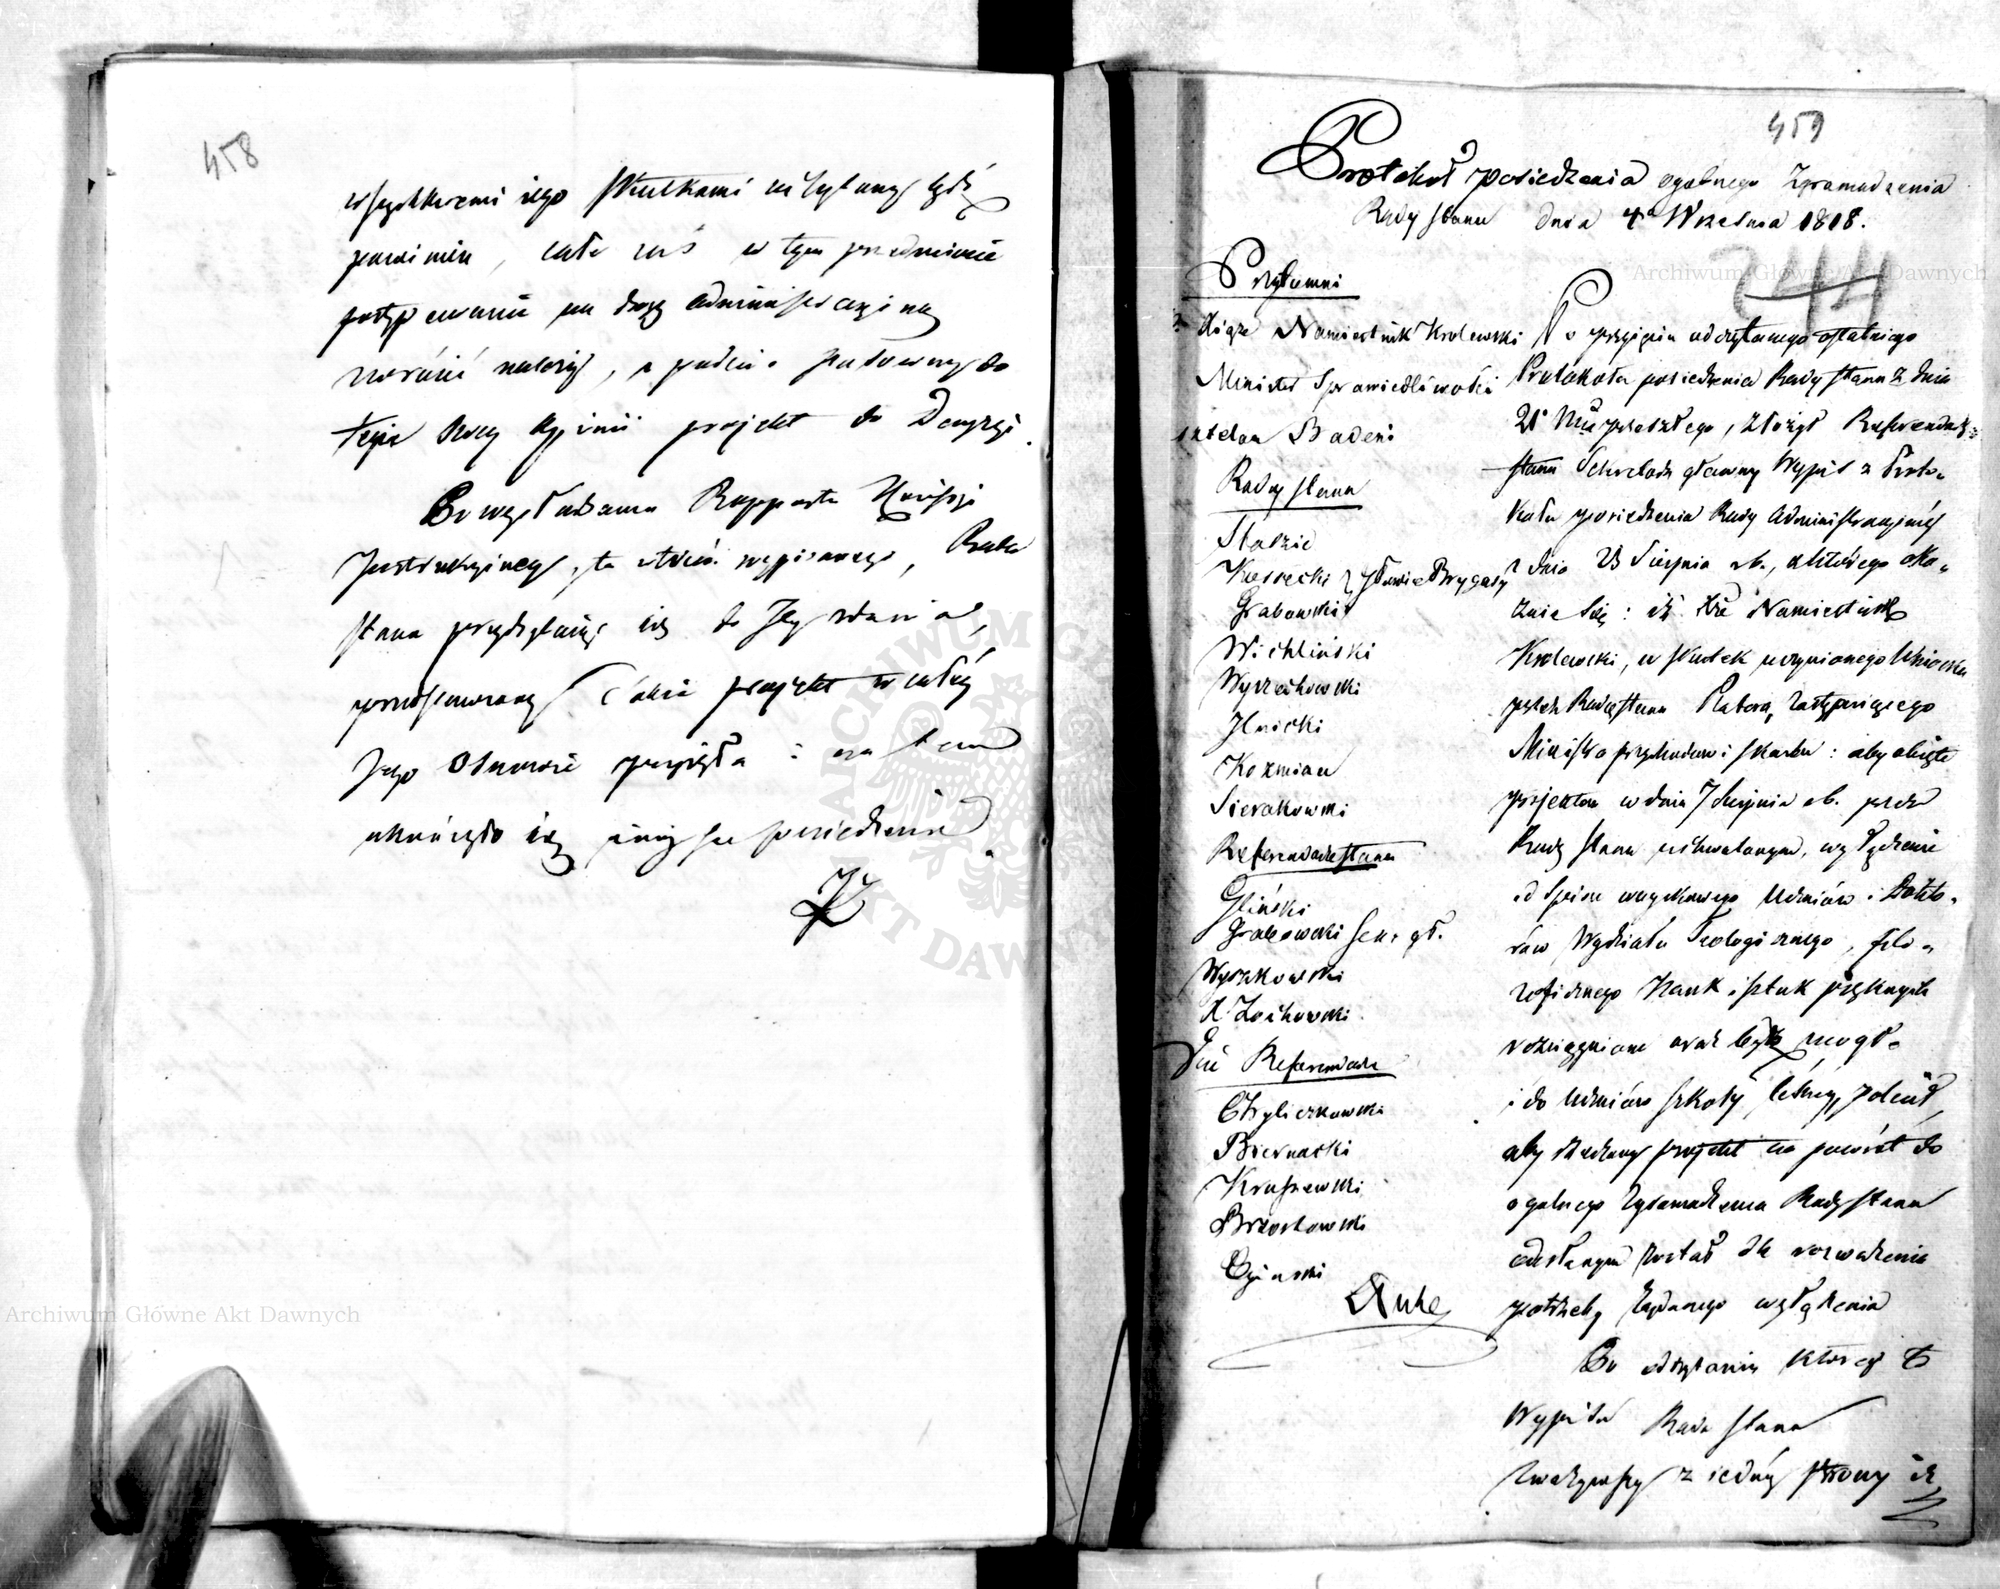 458
wszystkiemi iego skutkami uchylony bydź
powinien, całe zaś w tym przedmiocie
postępowanie na drogę administracyiną
zwrócić należy, i podało stosowny do
tejże swey Opinii projekt do Decyzyi.
Po wysłuchaniu Rapportu Kommissyi
Instrukcyiney, tu wpisanego, Rada
Stanu przychylaiąc się do Jey zdania,
przedstawiony także projekt w całey
Jego Osnowie przyięła i na tem
ukończyło się ninieysze posiedzenie.
459
Protokół posiedzenia ogólnego Zgromadzenia
Rady Stanu dnia 4o Września 1818.
244
Przytomni
Xiąże Namiestnik Królewski
Minister Sprawiedliwości
Kasztelan Badeni
Rady Stanu
Staszic
Kossecki z głowie Brygady
Grabowski
Wichliński
Wyczechowski
Ilnicki
Koźmian
Sierakowski
Referendarze Stanu
Gliński
Grabowski Sek. gł.
Wyszkowski
X. Zochowski
Referendarze
Chyliczkowski
Biernacki
Kruszewski
Brzostowski
Oginski
Po przyięciu odczytanego ostatniego
Protokołu posiedzenia Rady Stanu z dnia
21 Mca przeszłego, złożył Referendarz
Stanu Sekretarz główny Wypis z Proto-
kołu posiedzenia Rady Administracyiney
z dnia 25 Sierpnia rb., z którego oka-
zuie się: iż Xże Namiestnik
Królewski, w skutek uczynionego Wniosku
przez Radcę Stanu Platera, zastępuiącego
Ministra przychodów i Skarbu: aby obięte
projektem w dniu 7 Sierpnia rb. przez
Radę Stanu uchwalonym, wyłączenie
od Spisu woyskowego Uczniów i Dokto-
rów Wydziału Teologicznego, filo-
zoficznego Nauk i sztuk pięknych
rozciągnione być mogło
i do Uczniów Szkoły leśney, polecił,
aby rzeczony projekt na powrót do
ogólnego Zgromadzenia Rady Stanu
odesłanym został dla rozważenia
potrzeby żądanego wyłączenia
Po odczytaniu którego to
Wypisu Rada Stanu
zważywszy z iedney strony iż